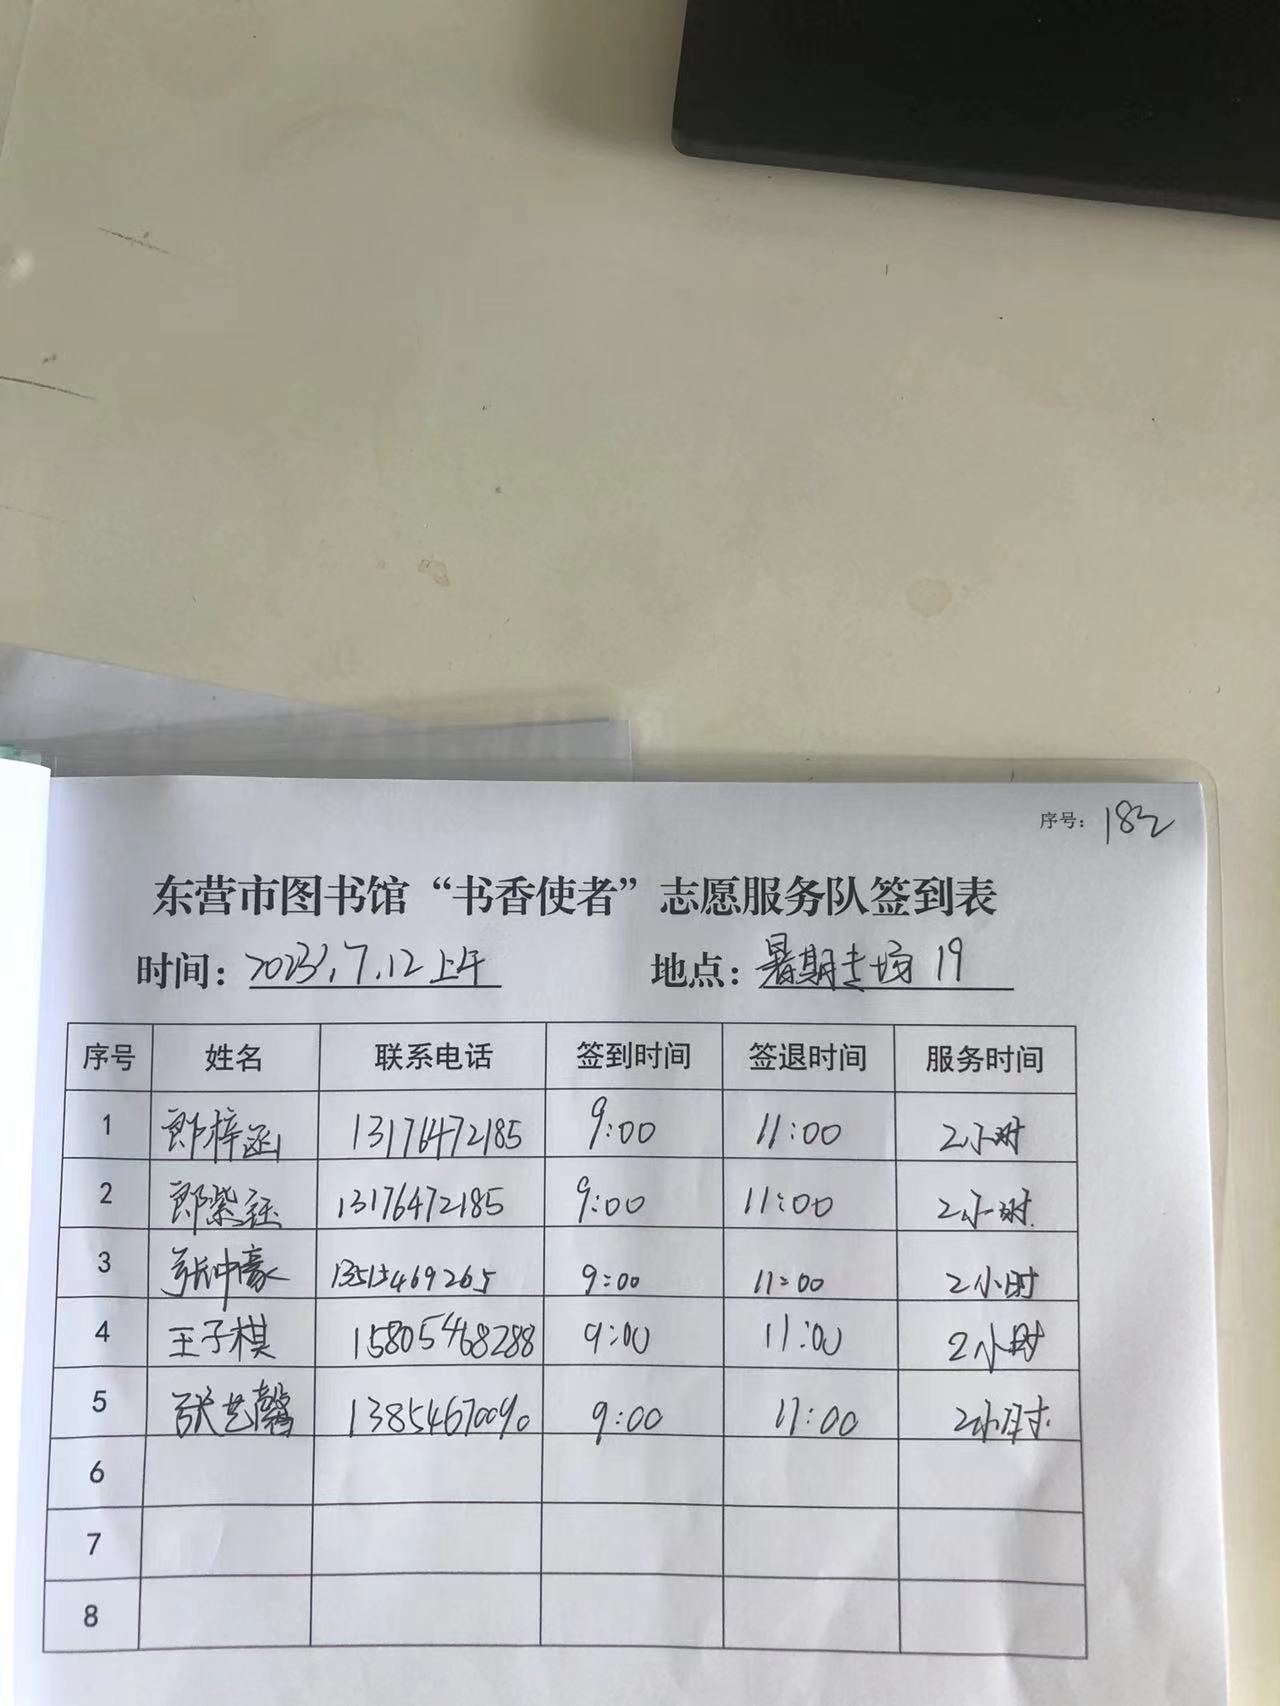 序号：182
东营市图书馆“书香使者”志愿服务队签到表
时间：2023.7.12上午 地点：暑期专场19
序号 姓名 联系电话 签到时间 签退时间 服务时间
1 郎梓涵 13176472185 9:00 11:00 2小时
2 郎紫钰 13176472185 9:00 11:00 2小时
3 张中豪 13515469265 9:00 11:00 2小时
4 王子棋 15805468288 9:00 11:00 2小时
5 张艺馨 13854670090 9:00 11:00 2小时
6
7
8